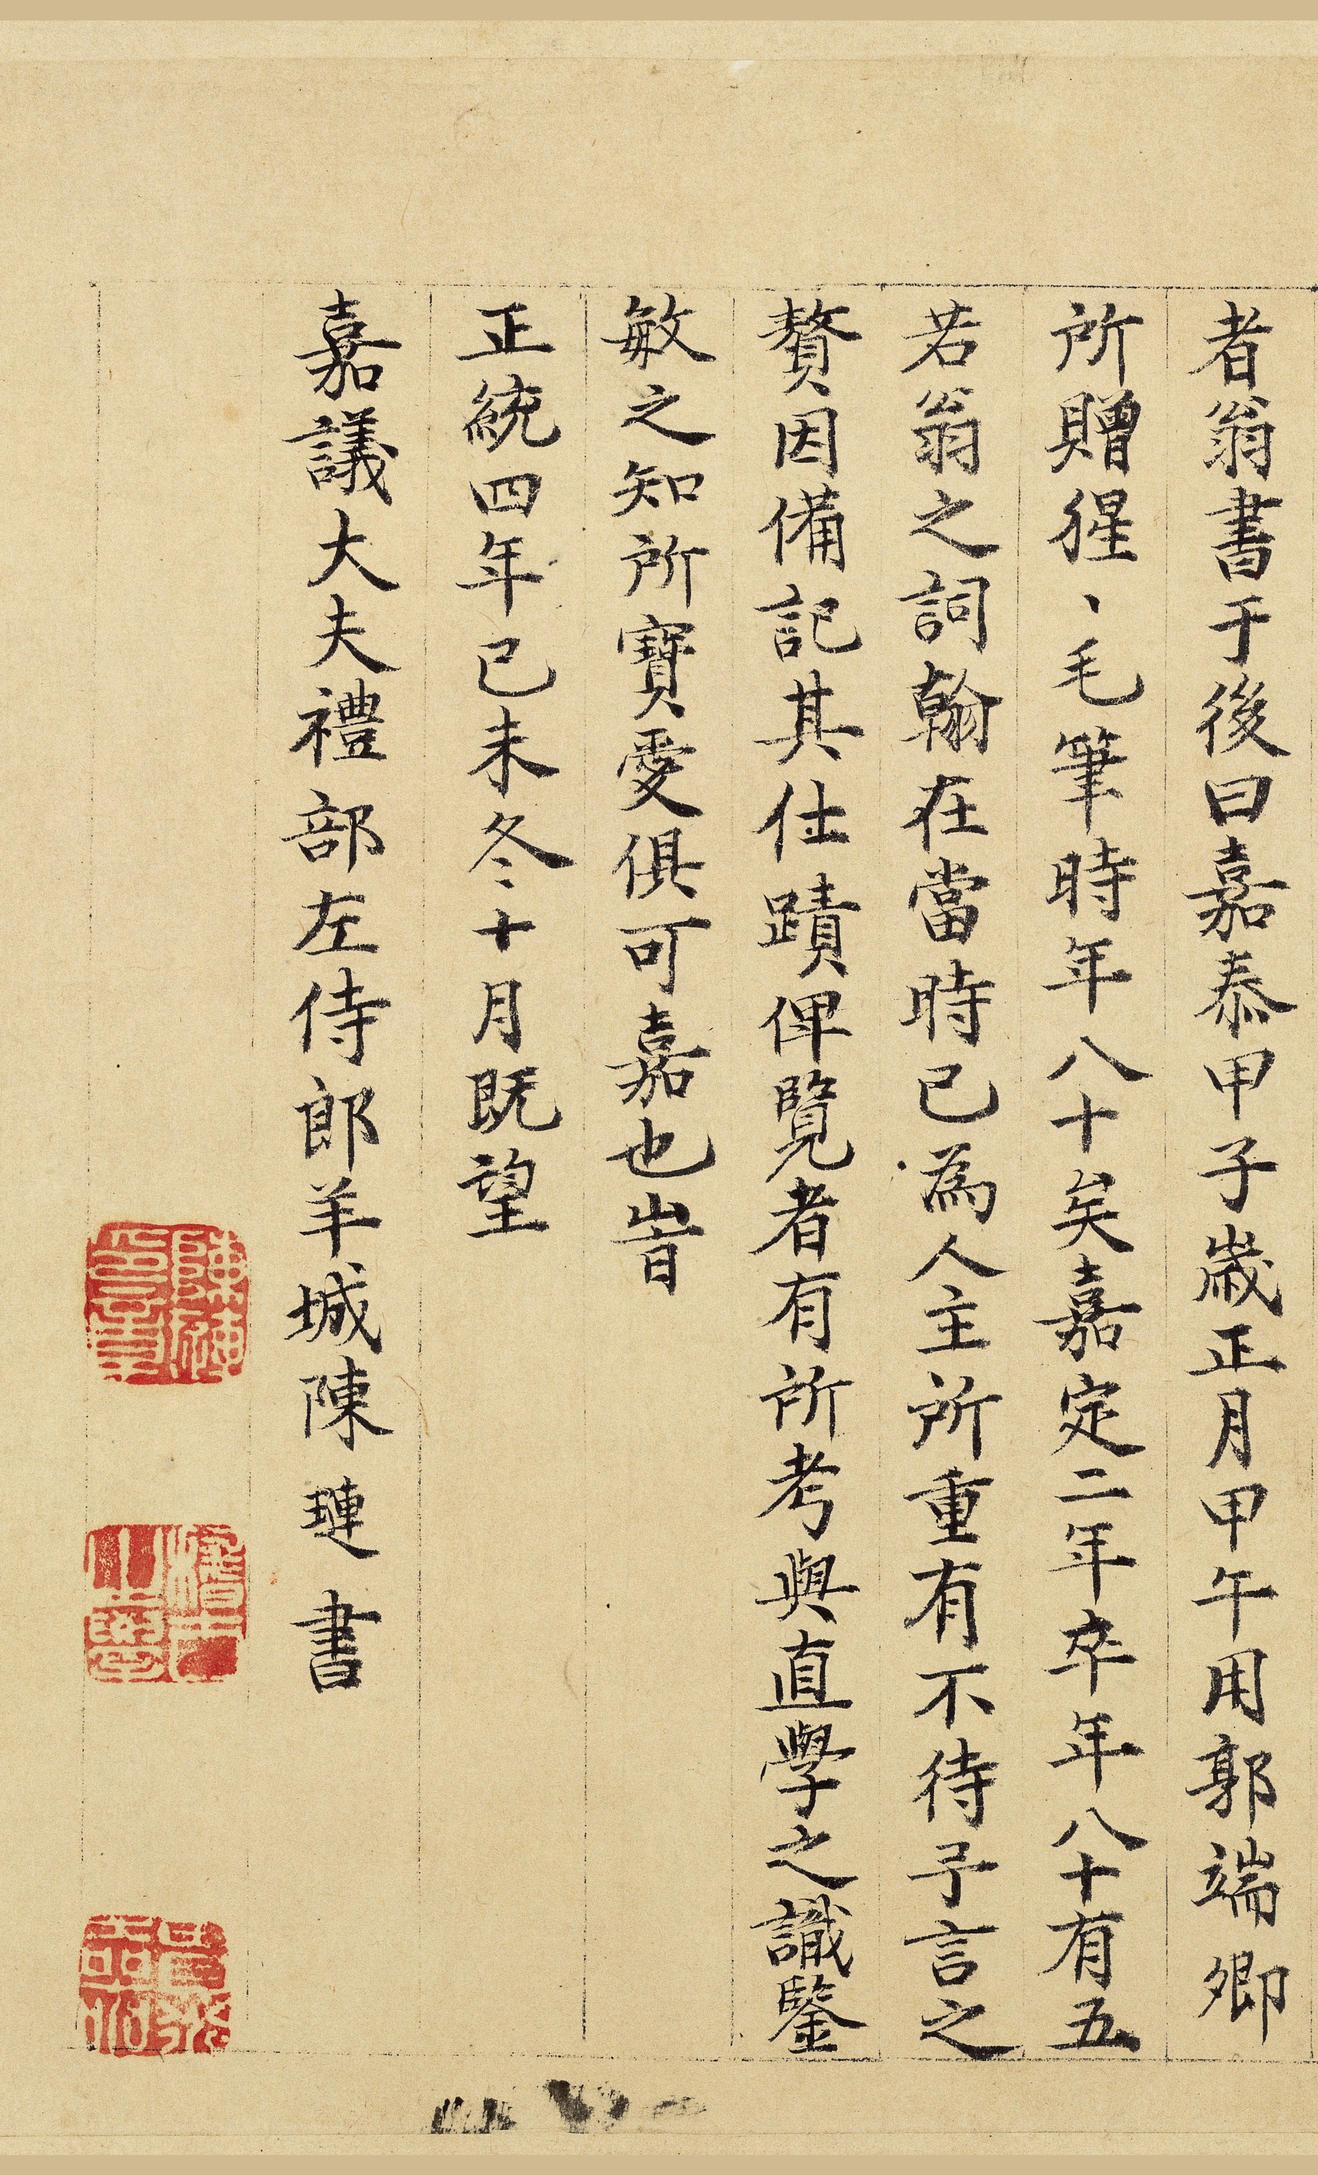 者翁書于後曰嘉泰甲子歲正月甲午用郭端卿
所贈猩、毛筆時年八十矣嘉定二年卒年八十有五
若翁之詞翰在當時已為人主所重有不待予言之
贅因備記其仕蹟俾覽者有所考與直學之識鑒
敏之知所寶愛俱可嘉也旹
正統四年己未冬十月既望
嘉議大夫禮部左侍郎羊城陳璉書